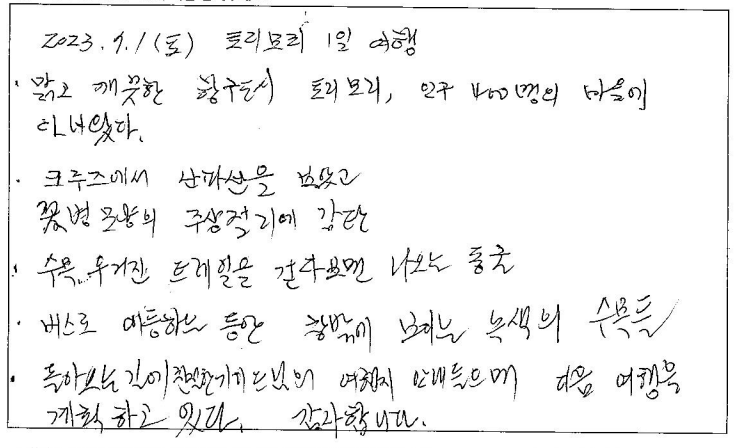 2023. 7. 1 (토) 토리모리 1일 여행
· 맑고 깨끗한 항구도시 토리모리, 인구 400명의 마을에
다녀왔다.
· 크루즈에서 산파산을 보았고
꽃병 모양의 주상절리에 감탄
· 수목 우거진 트레일을 걷다보면 나오는 동굴
· 버스로 이동하는 동안 창밖에 보이는 녹색의 수목들
· 돌아오는 길에 친절한 가이드님의 여행지 안내 들으며 다음 여행을
계획하고 있다. 감사합니다.